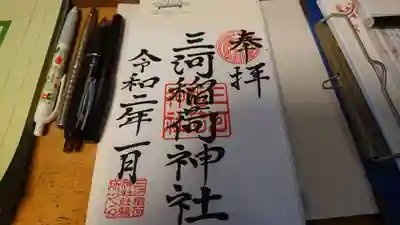 奉拝
三河稲荷神社
令和二年一月